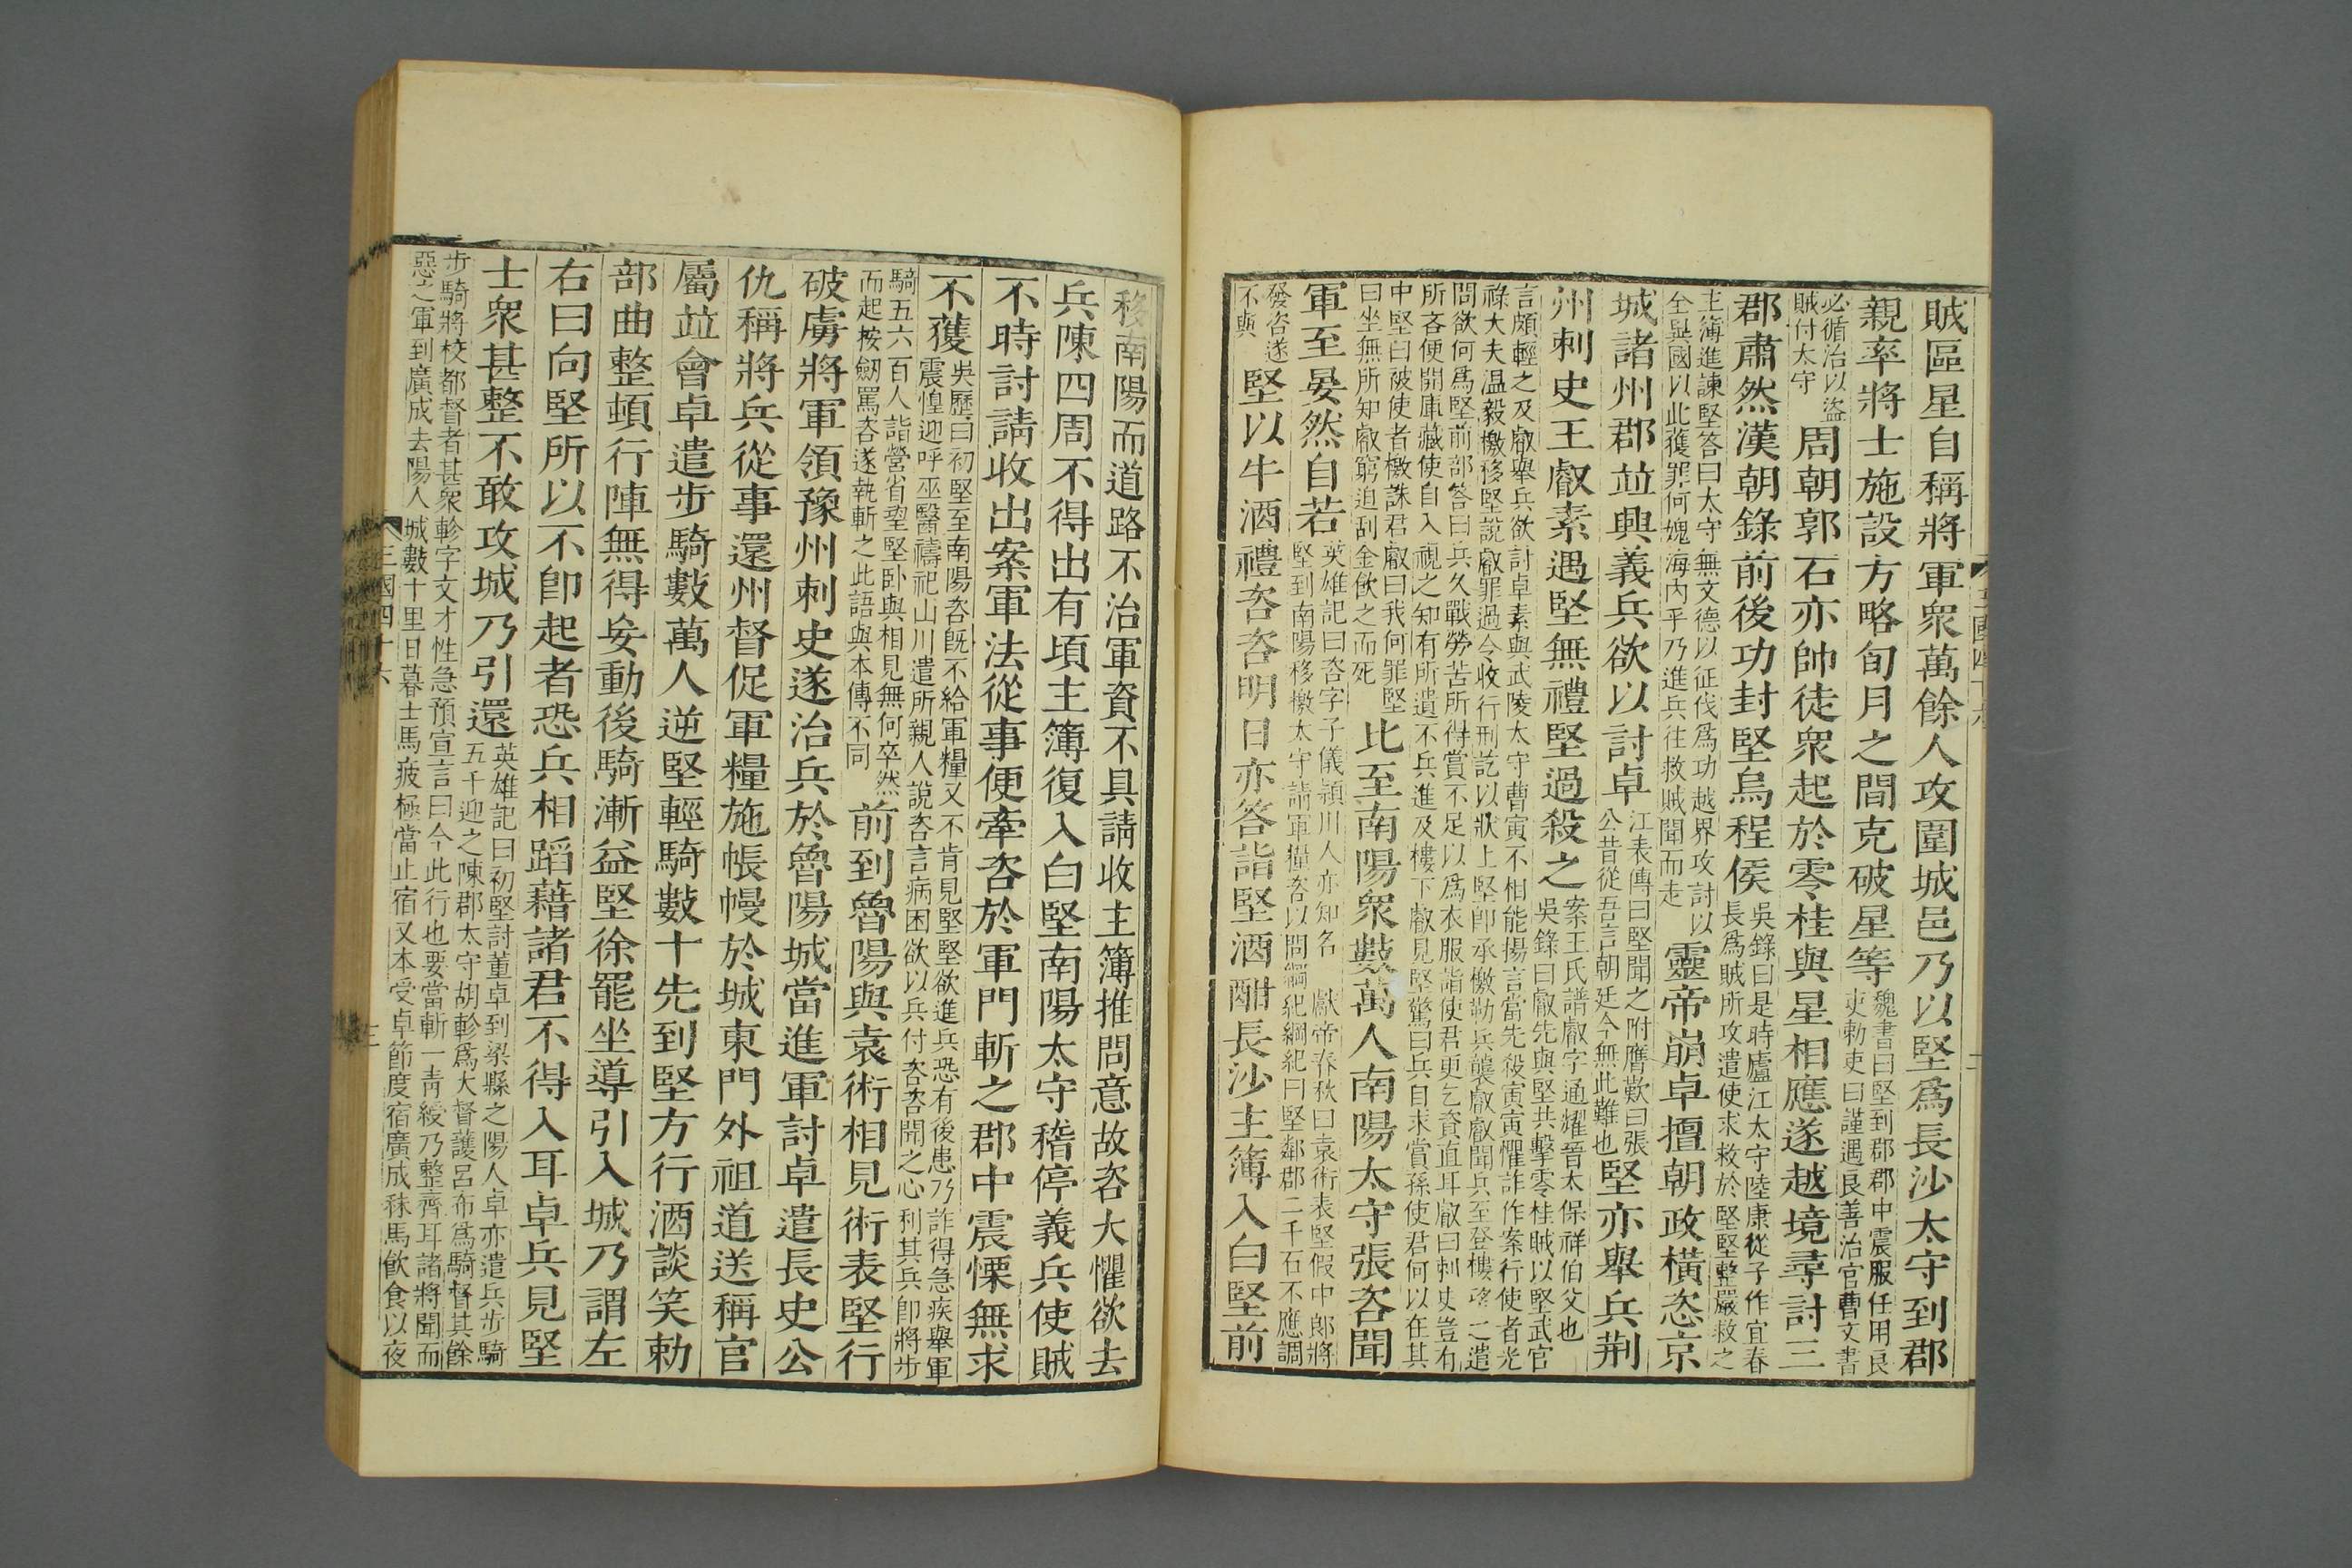 賊區星自稱將軍衆萬餘人攻圍城邑乃以堅爲長沙太守到郡
親率將士施設方略旬月之間克破星等魏書曰堅到郡郡中震服任用良吏勅吏曰謹遇良善治官曹文書
必循治以盜賊付太守周朝郭石亦帥徒衆起於零桂與星相應遂越境尋討三
郡肅然漢朝錄前後功封堅烏程侯吳錄曰是時廬江太守陸康從子作宜春長爲賊所攻遣使求救於堅堅整嚴救之
主簿進諫堅答曰太守無文德以征伐爲功越界攻討以全異國以此獲罪何媿海內乎乃進兵往救賊聞而走靈帝崩卓擅朝政橫恣京
城諸州郡並興義兵欲以討卓江表傳曰堅聞之拊膺歎曰張公昔從吾言朝廷今無此難也堅亦舉兵荆
州刺史王叡素遇堅無禮堅過殺之案王氏譜叡字通耀晉太保祥伯父也吳錄曰叡先與堅共擊零桂賊以堅武官
言頗輕之及叡舉兵欲討卓素與武陵太守曹寅不相能揚言當先殺寅寅懼詐作案行使者光祿大夫温毅檄移堅說叡罪過令收行刑訖以狀上堅卽承檄勒兵襲叡叡聞兵至登樓望之遣
問欲何爲堅前部答曰兵久戰勞苦所得賞不足以爲衣服詣使君更乞資直耳叡曰刺史豈有所吝便開庫藏使自入視之知有所遺不兵進及樓下叡見堅驚曰兵自求賞孫使君何以在其
中堅曰被使者檄誅君叡曰我何罪堅曰坐無所知叡窮迫刮金飲之而死比至南陽衆數萬人南陽太守張咨聞
軍至晏然自若英雄記曰咨字子儀潁川人亦知名獻帝春秋曰袁術表堅假中郎將堅到南陽移檄太守請軍糧咨以問綱紀綱紀曰堅鄰郡二千石不應調
發咨遂不與堅以牛酒禮咨咨明日亦答詣堅酒酣長沙主簿入白堅前
移南陽而道路不治軍資不具請收主簿推問意故咨大懼欲去
兵陳四周不得出有頃主簿復入白堅南陽太守稽停義兵使賊
不時討請收出案軍法從事便牽咨於軍門斬之郡中震慄無求
不獲吳歷曰初堅至南陽咨旣不給軍糧又不肯見堅堅欲進兵恐有後患乃詐得急疾舉軍震惶迎呼巫醫禱祀山川遣所親人說咨言病困欲以兵付咨咨聞之心利其兵卽將步
騎五六百人詣營省堅堅臥與相見無何卒然而起按劒罵咨遂執斬之此語與本傳不同前到魯陽與袁術相見術表堅行
破虜將軍領豫州刺史遂治兵於魯陽城當進軍討卓遣長史公
仇稱將兵從事還州督促軍糧施帳幔於城東門外祖道送稱官
屬並會卓遣步騎數萬人逆堅輕騎數十先到堅方行酒談笑勅
部曲整頓行陣無得妄動後騎漸益堅徐罷坐導引入城乃謂左
右曰向堅所以不卽起者恐兵相蹈藉諸君不得入耳卓兵見堅
士衆甚整不敢攻城乃引還英雄記曰初堅討董卓到梁縣之陽人卓亦遣兵步騎五千迎之陳郡太守胡軫爲大督護呂布爲騎督其餘
步騎將校都督者甚衆軫字文才性急預宣言曰今此行也要當斬一青綬乃整齊耳諸將聞而惡之軍到廣成去陽人城數十里日暮士馬疲極當止宿又本受卓節度宿廣成秣馬飲食以夜
三國四十六
三